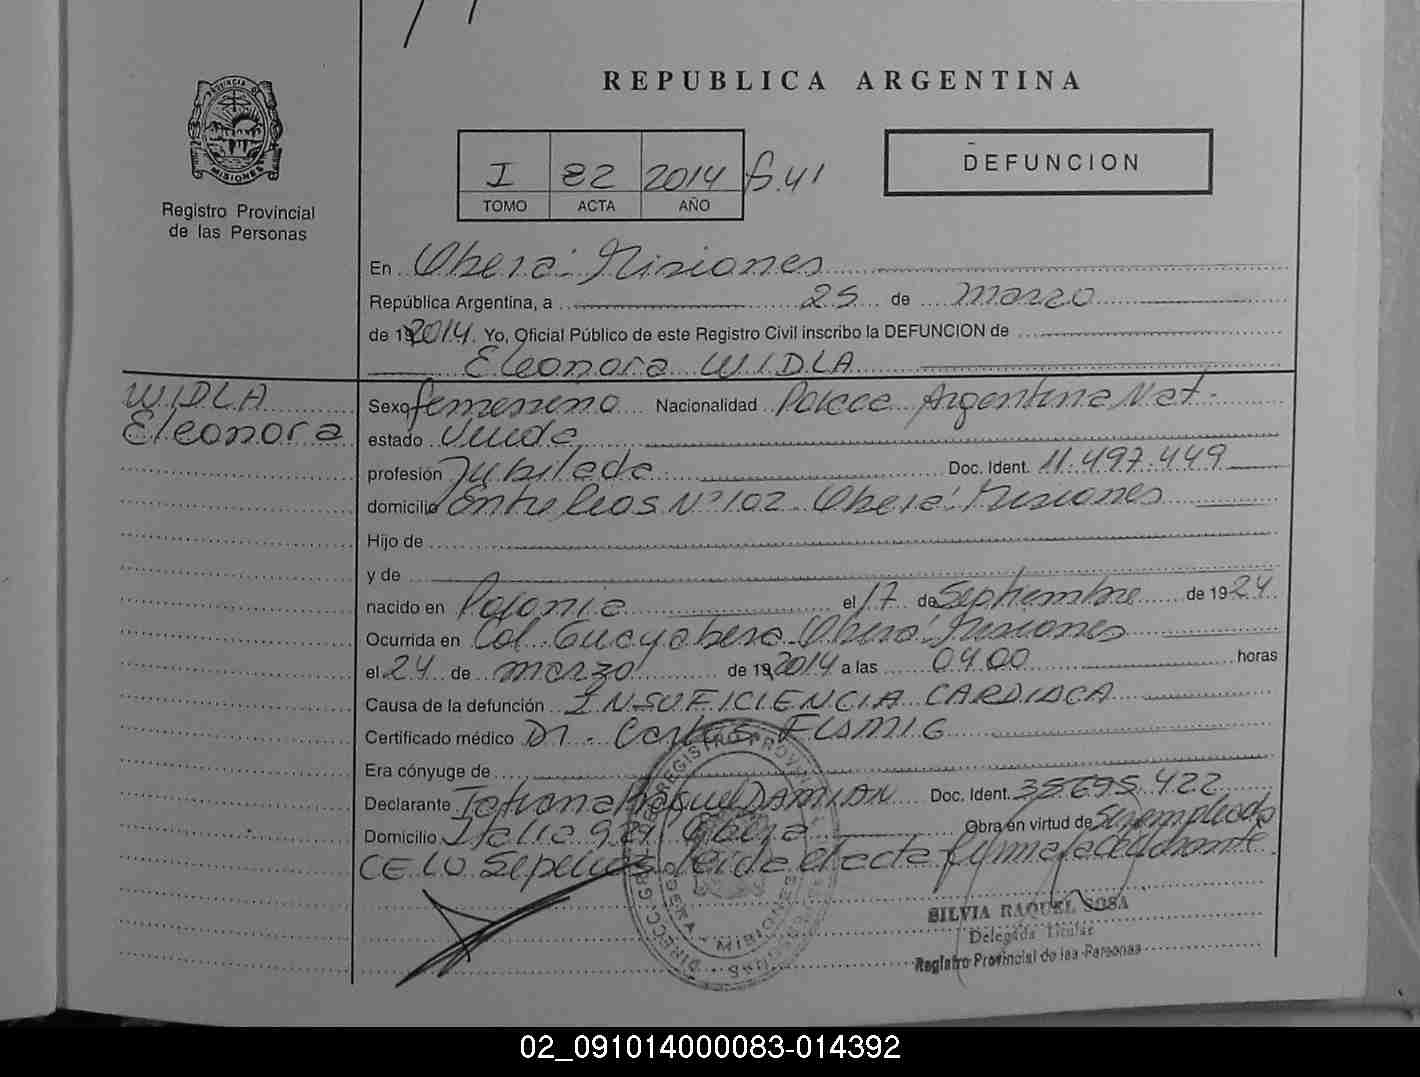 REPUBLICA ARGENTINA
PROVINCIA DE
MISIONES
Registro Provincial
de las Personas
I 82 2014 f. 41
TOMO ACTA AÑO
DEFUNCION
En Oberá - Misiones
República Argentina, a 25 de marzo
de 192014 Yo, Oficial Público de este Registro Civil inscribo la DEFUNCION de
Eleonora WIDLA
WIDLA
Eleonora
Sexo femenino Nacionalidad Polaca Argentina Nat.
estado Viuda
profesión Jubilada Doc. Ident. 11.497.449
domicilio Entre Rios Nº 102 - Oberá - Misiones
Hijo de
y de
nacido en Polonia el 17 de Septiembre de 1924
Ocurrida en Col. Guayabera Oberá - Misiones
el 24 de marzo de 192014 a las 04 00 horas
Causa de la defunción INSUFICIENCIA CARDIACA
Certificado médico Dr. Carlos
Era cónyuge de
Declarante Tatiana Raquel DAMIAN Doc. Ident. 35.695.422
Domicilio Italia Oberá Obra en virtud de ser empleada
CELO Sepelios leida el acta firma
SILVIA RAQUEL SOSA
Delegada Titular
Registro Provincial de las Personas
REGISTRO PROVINCIAL
MISIONES
02_091014000083-014392